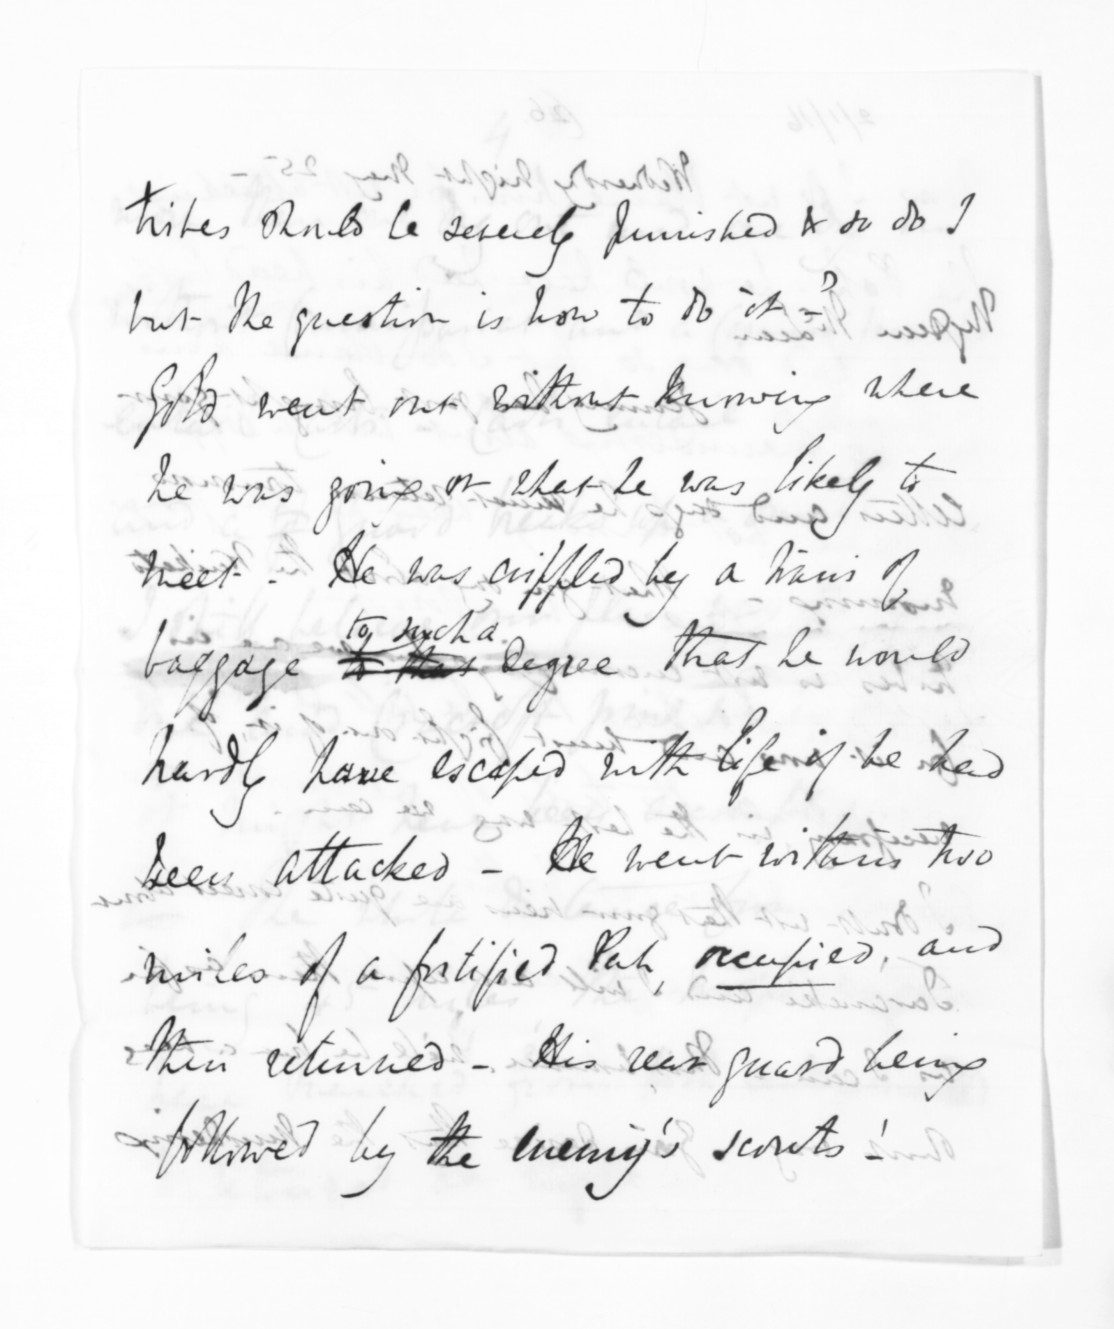 tribes should be severely punished & so do I
but the question is how to do it?
Gold went out without knowing where
he was going or what he was likely to
meet - He was crippled by a train of
to such a
baggage degree that he would
hardly have escaped with life if he had
been attacked - He went within two
miles of a fortified Pah, occupied, and
then returned - His rear guard being
followed by the enemy's scouts!